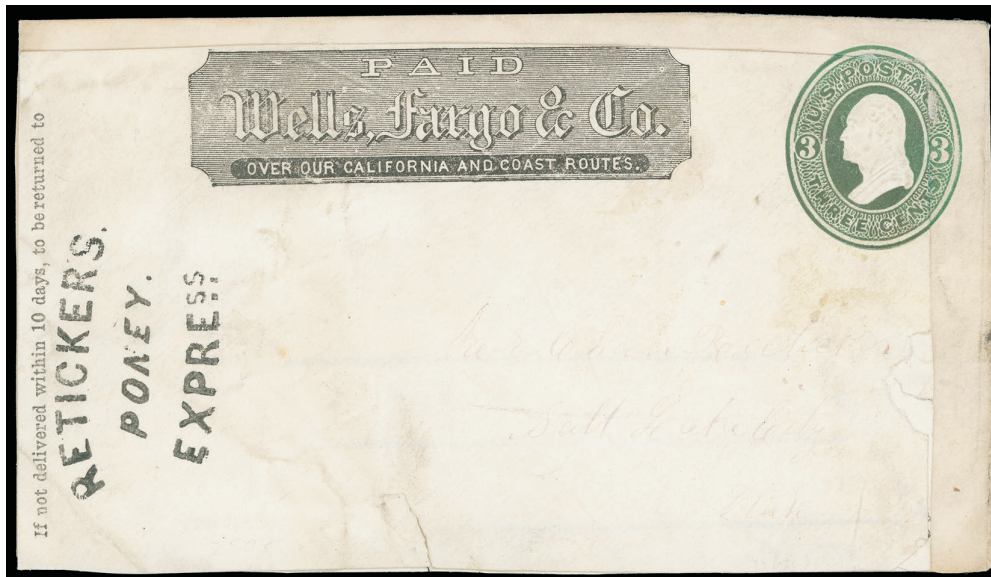 PAID
Wells, Fargo & Co.
OVER OUR CALIFORNIA AND COAST ROUTES.
U.S. POSTAGE
3 3
THREE CENTS
If not delivered within 10 days, to be returned to
RETICKERS.
PONEY.
EXPRESS
Salt Lake City
Utah